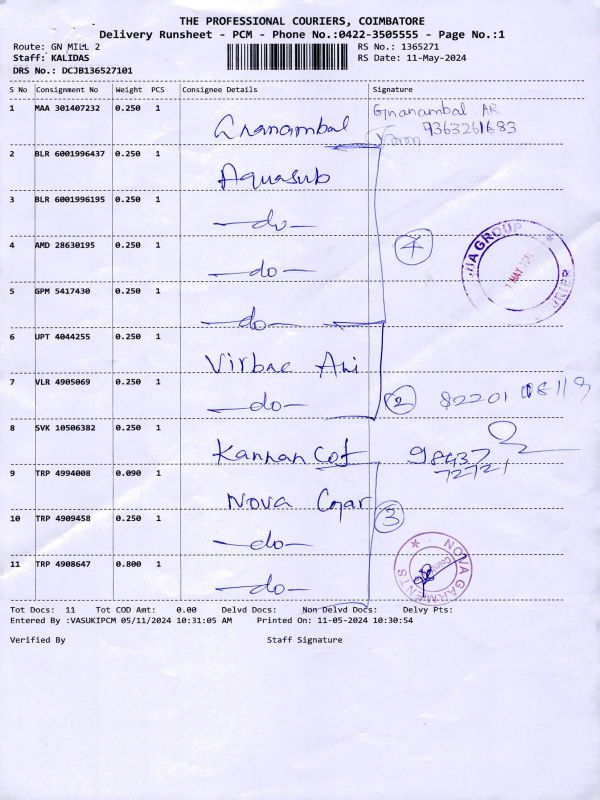 THE PROFESSIONAL COURIERS, COIMBATORE
Delivery Runsheet - PCM - Phone No.:0422-3505555 - Page No.:1
Route: GN MILL 2 RS No.: 1365271
Staff: KALIDAS RS Date: 11-May-2024
DRS No.: DCJB136527101
S No Consignment No Weight PCS Consignee Details Signature
1 MAA 301407232 0.250 1 Gnanambal Gnanambal AR
9363261683
2 BLR 6001996437 0.250 1 Aquasub
3 BLR 6001996195 0.250 1 —do—
4 AMD 28630195 0.250 1 —do— 4
5 GPM 5417430 0.250 1 —do—
6 UPT 4044255 0.250 1 Virbac Ani
7 VLR 4905069 0.250 1 —do— 2 82201 08119
8 SVK 10506382 0.250 1 Kannan Cot 98437
72721
9 TRP 4994008 0.090 1 Nova Gar
10 TRP 4909458 0.250 1 —do— 3
11 TRP 4908647 0.800 1 —do— NOVA GARMENTS
Tot Docs: 11 Tot COD Amt: 0.00 Delvd Docs: Non Delvd Docs: Delvy Pts:
Entered By :VASUKIPCM 05/11/2024 10:31:05 AM Printed On: 11-05-2024 10:30:54
Verified By Staff Signature